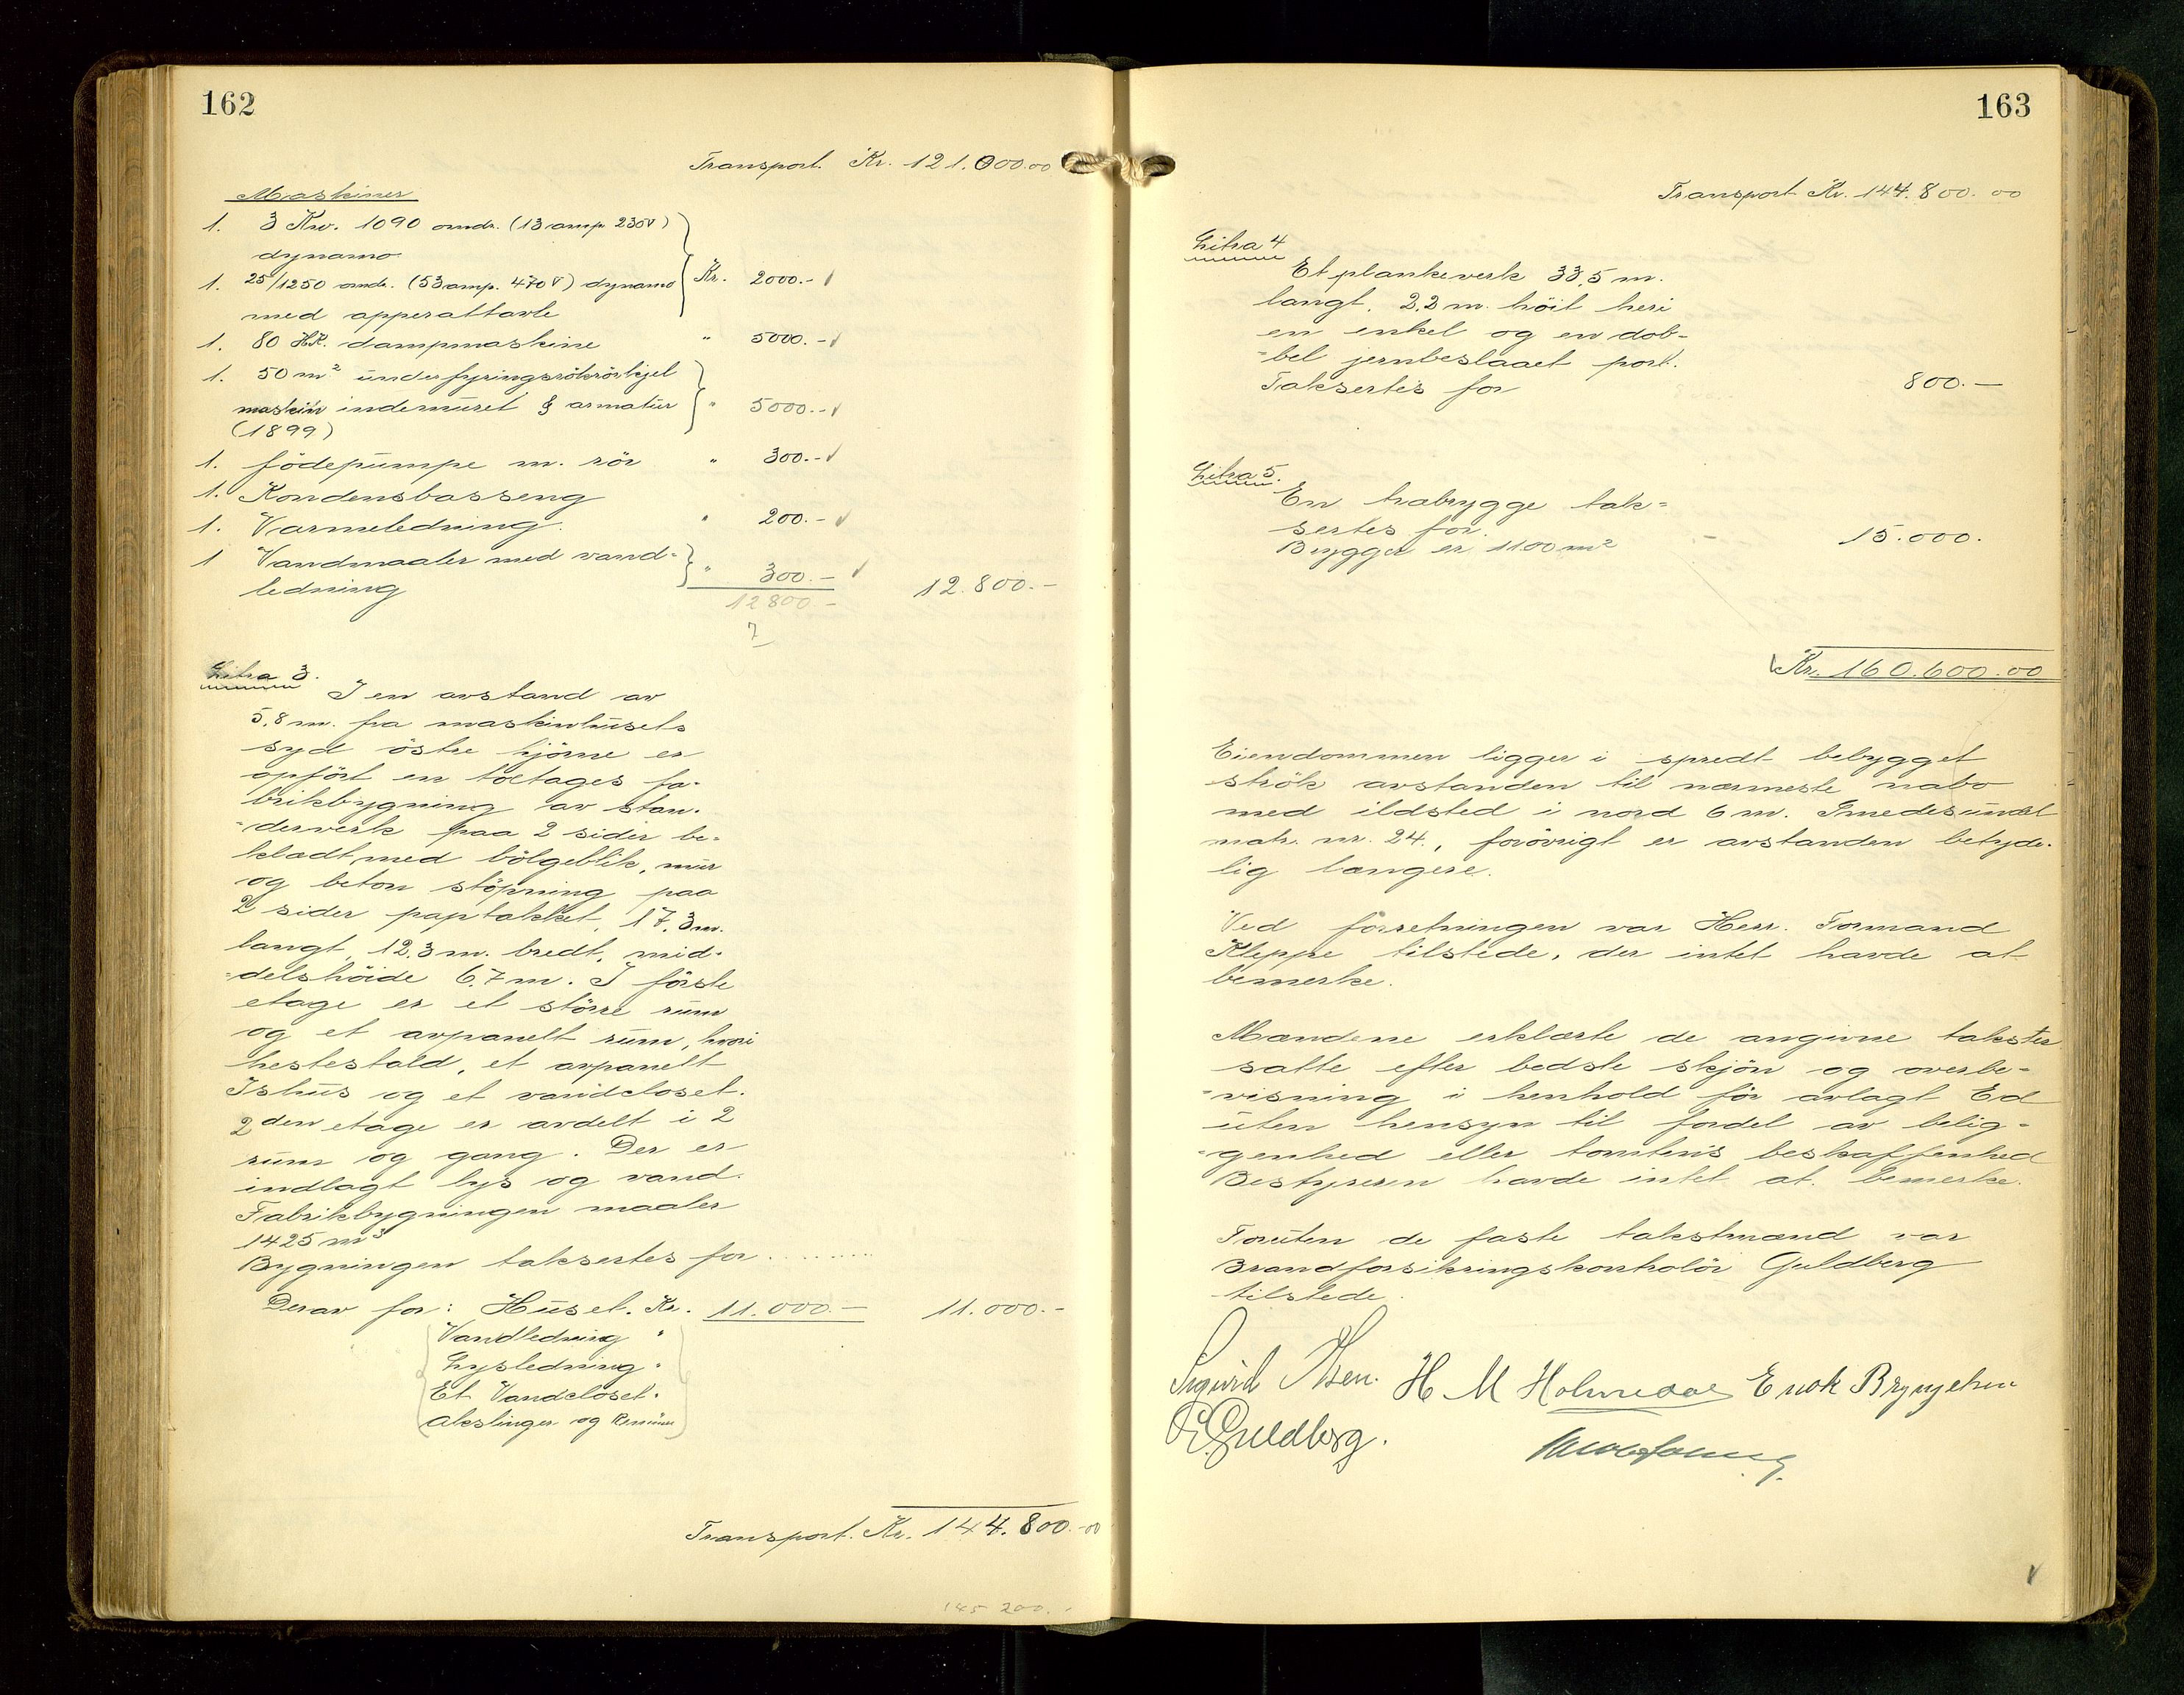 162
Transport. Kr. 121.000.00
Maskiner
1. 3 Kw. 1090 omdr. (13 amp 230V)
dynamo
1. 25/1250 omdr. (53 amp. 470V) dynamo Kr. 2000.-
med apperattavle
1. 80 HK. dampmaskine " 5000.-
1. 50 m² underfyringsrökrörkjel
maskin indemuret & armatur " 5000.-
(1899)
1. födepumpe m. rör " 300.-
1. Kondensbasseng
1. Varmeledning. " 200.-
1 Vandmaaler med vand-
ledning " 300.- 12.800.-
12800-
7
Litra 3.
I en avstand av
5,8 m. fra maskinhusets
syd östre hjörne er
opfört en toetages fa-
brikbygning av stan-
derverk paa 2 sider be-
kladt med bölgeblik, mur
og beton stöpning paa
2 sider paptakket, 17,3 m.
langt, 12,3 m. bredt, mid-
delshöide 6,7 m. I förste
etage er et större rum
og et avpanelt rum, hvori
hestestald, et avpanelt
Ishus og et vandcloset.
2den etage er avdelt i 2
rum og gang. Der er
indlagt lys og vand.
Fabrikbygningen maaler
1425 m³
Bygningen taksertes for .........
Derav for: Huset. Kr. 11.000.- 11.000.-
Vandledning "
Lysledning "
Et Vandcloset.
Akslinger og Remmer
Transport. Kr. 144.800.-00
145 200.
163
Transport Kr. 144.800.00
Litra 4
Et plankeverk 33,5 m.
langt, 2,2 m. höit heri
en enkel og en dob-
bel jernbeslaaet port.
Taksertes for 800.-
Litra 5.
En trabrygge tak-
sertes for.
Bryggen er 1100 m² - 15.000.
Kr. 160.600.00
Eiendommen ligger i spredt bebygget
strök avstanden til nærmeste nabo
med ildsted i nord 6 m. Smedesundet
matr. nr. 24., forövrigt er avstanden betyde-
lig længere.
Ved forretningen var Herr. Formand
Kleppe tilstede, der intet havde at
bemerke.
Mændene erklærte de angivne takster
satte efter bedste skjön og overbe-
visning i henhold för avlagt Ed
uten hensyn til fordel av belig-
genhed eller tomtens beskaffenhed
Bestyreren havde intet at bemerke.
Foruten de faste takstmænd var
Brandforsikringskontrolör Guldberg
tilstede.
Sigurd Olsen. H M Holmedal Enok Brynjelsen
E. Guldberg.